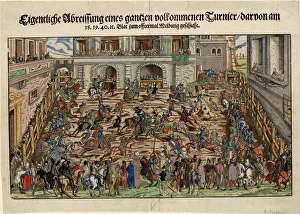 Eigentliche Abreissung eines gantzen volkommenen Turnier / darvon am
38. 39. 40. u. Blat zum offtermal Meldung geschicht.